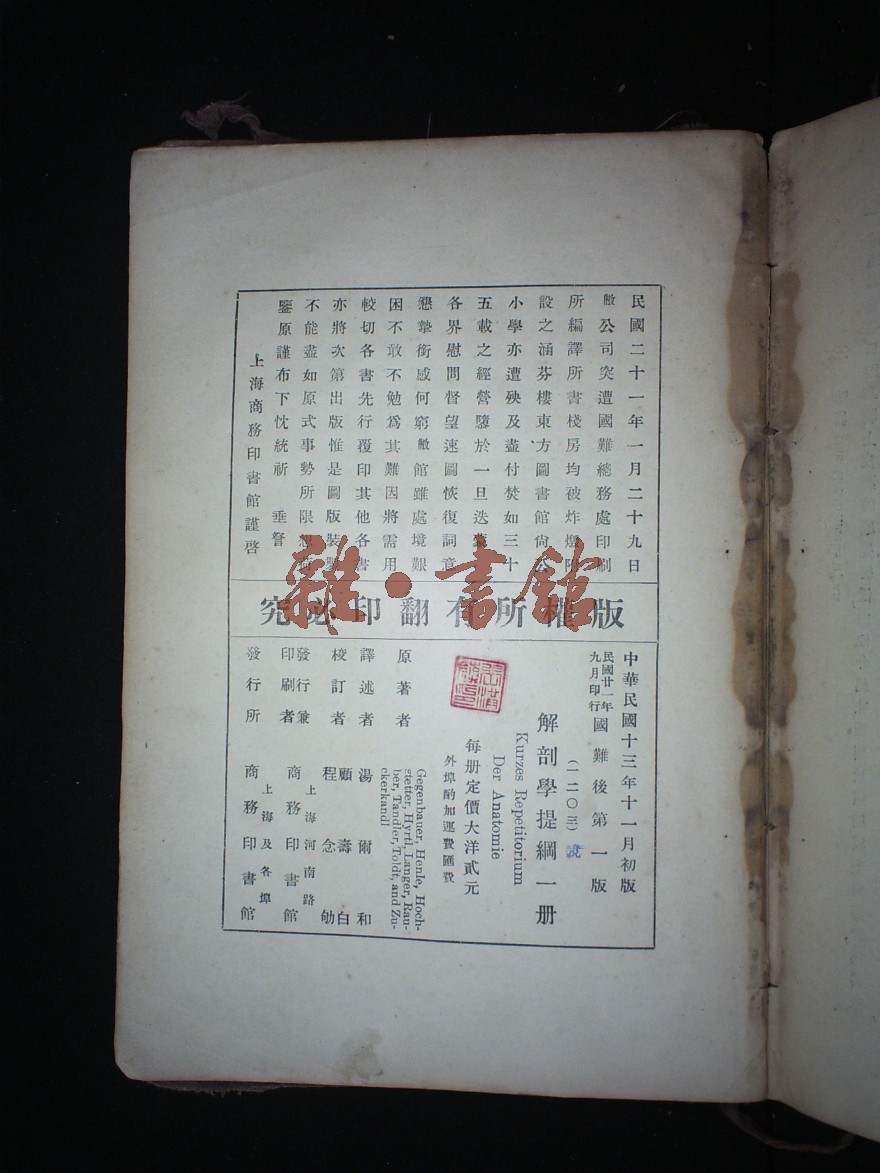 民國二十一年一月二十九日
敝公司突遭國難總務處印刷
所編譯所書棧房均被炸燬附
設之涵芬樓東方圖書館尚公
小學亦遭殃及盡付焚如三十
五載之經營隳於一旦迭蒙
各界慰問督望速圖恢復詞意
懇摯銜感何窮敝館雖處境艱
困不敢不勉為其難因將需用
較切各書先行覆印其他各書
亦將次第出版惟是圖版裝製
不能盡如原式事勢所限想荷
鑒原謹布下忱統祈 垂詧
上海商務印書館謹啓
雜·書館
究必印翻有所權版
中華民國十三年十一月初版
民國廿一年九月印行 國難後第一版
(一二〇三)
解剖學提綱一册
Kurzes Repetitorium
Der Anatomie
每册定價大洋貳元
外埠酌加運費匯費
原著者
Gegenbauer, Henle, Hoch-
stetter, Hyrtl, Langer, Rau-
ber, Tandler, Toldt, and Zu-
ckerkandl
譯述者 湯爾和
校訂者 顧壽白
程念劬
發行兼印刷者 上海河南路
商務印書館
發行所 上海及各埠
商務印書館